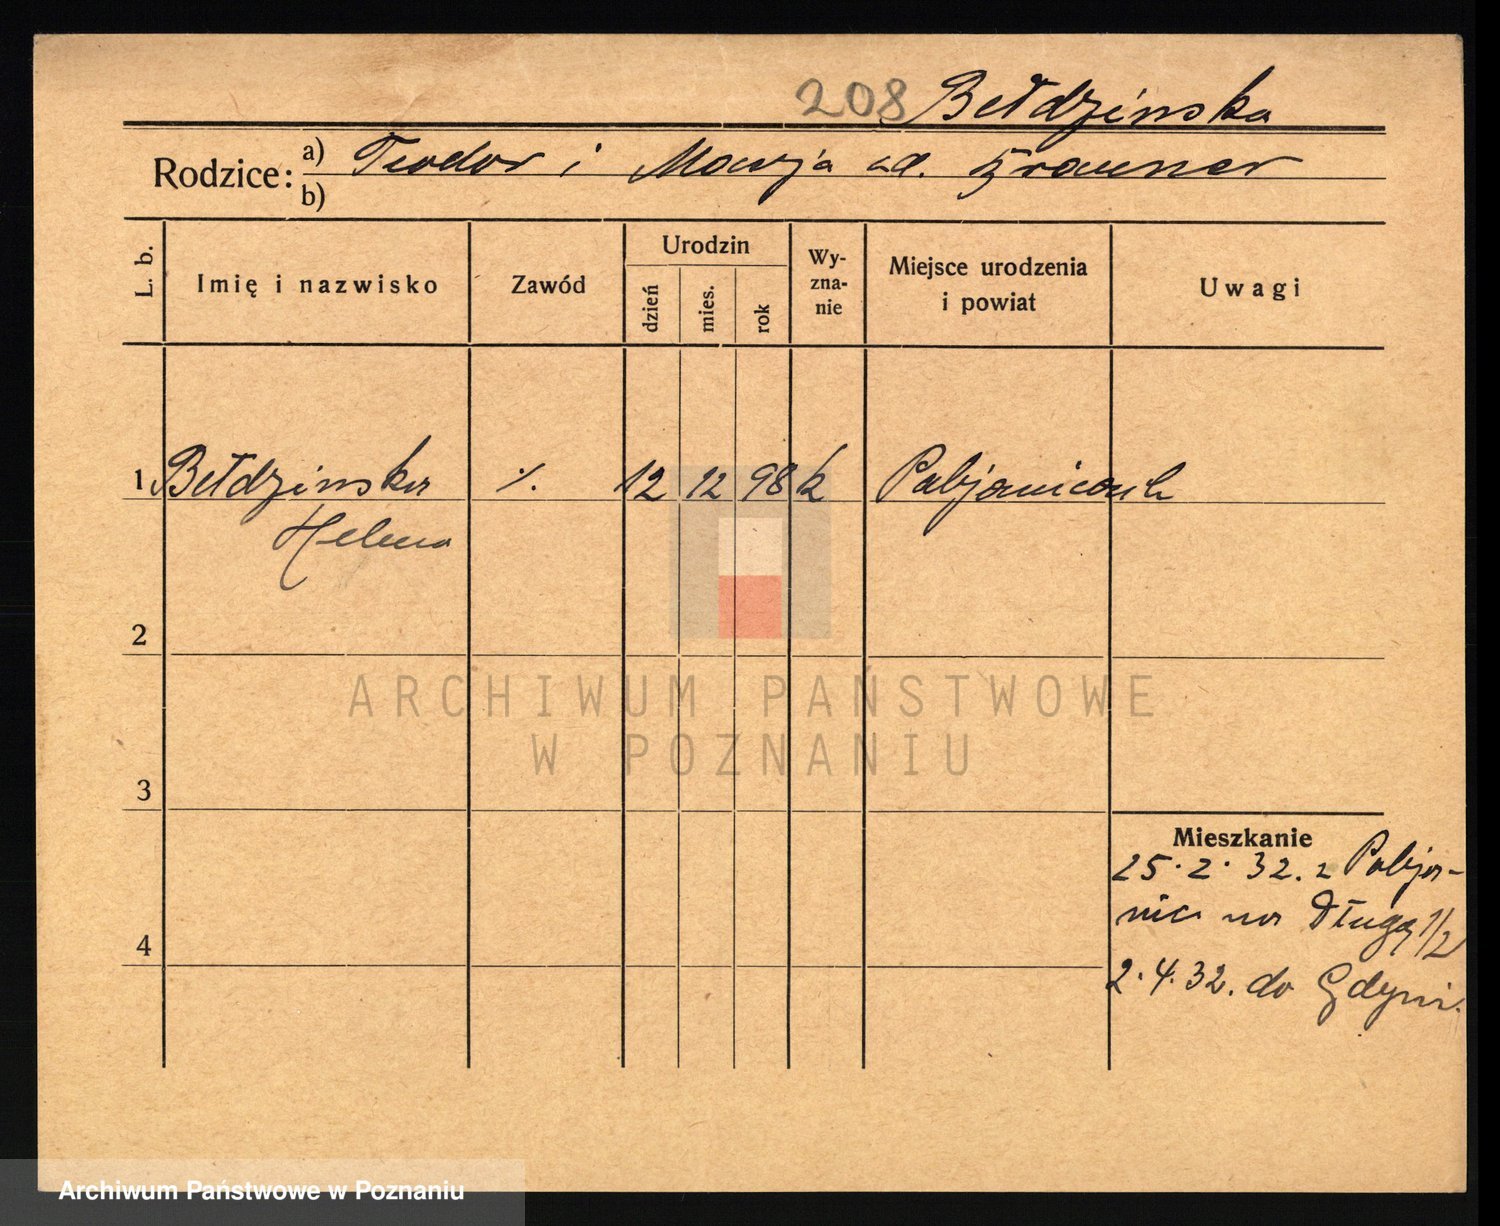 208 Bełdzinska
Rodzice: a) Teodor i Marja
b)
L. b.
Imię i nazwisko
Zawód
Urodzin
dzień
mies.
rok
Wy-
zna-
nie
Miejsce urodzenia
i powiat
Uwagi
1 Bełdzinska ./. 12 12 98 k Pabjanicach
Helena
2
3
4
Mieszkanie
25.2.32. z Pabja-
nic na Długą 1/2
2.4.32. do Gdyni.
ARCHIWUM PAŃSTWOWE
W POZNANIU
Archiwum Państwowe w Poznaniu